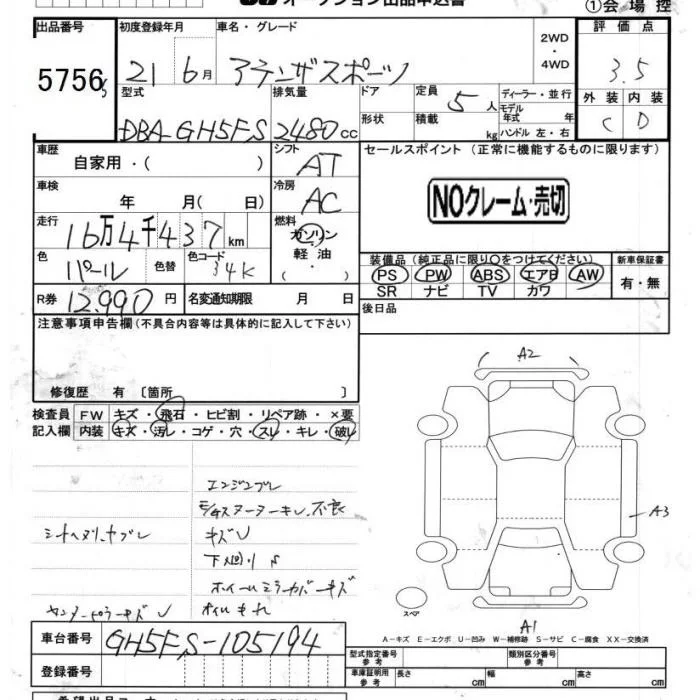 オークション出品申込書
①会場控
出品番号
5756
初度登録年月
21 6月
車名・グレード
アテンザスポーツ
2WD
・
4WD
評価点
3.5
外装 内装
C D
型式
DBA-GH5FS
排気量
2480cc
ドア
形状
定員
5人
積載
kg
ディーラー・並行
モデル
年式 年
ハンドル 左・右
車歴
自家用・( )
シフト
AT
セールスポイント (正常に機能するものに限ります)
NOクレーム・売切
車検
年 月(日)
冷房
AC
走行
16万4千437km
燃料
ガソリン
・
軽油
・
( )
色
パール
色替
色コード
34K
装備品 (純正品に限り○をつけてください)
PS PW ABS エアB AW
SR ナビ TV カワ
新車保証書
有・無
R券 12,990円
名変通知期限 月 日
後日品
注意事項申告欄(不具合内容等は具体的に記入して下さい)
修復歴 有 〔箇所 〕
検査員
記入欄
FW キズ・飛石・ヒビ割・リペア跡・×要
内装 キズ・汚レ・コゲ・穴・スレ・キレ・破レ
エンジンブレ
不良
キズU
下廻りS
ホイールミラーカバーキズ
オイルもれ
A2
A3
A1
スペア
A-キズ E-エクボ U-凹み W-補修跡 S-サビ C-腐食 XX-交換済
車台番号
GH5FS-105194
登録番号
型式指定番号
参考
類別区分番号
参考
車庫証明用
参考
長さ cm
幅 cm
高さ cm